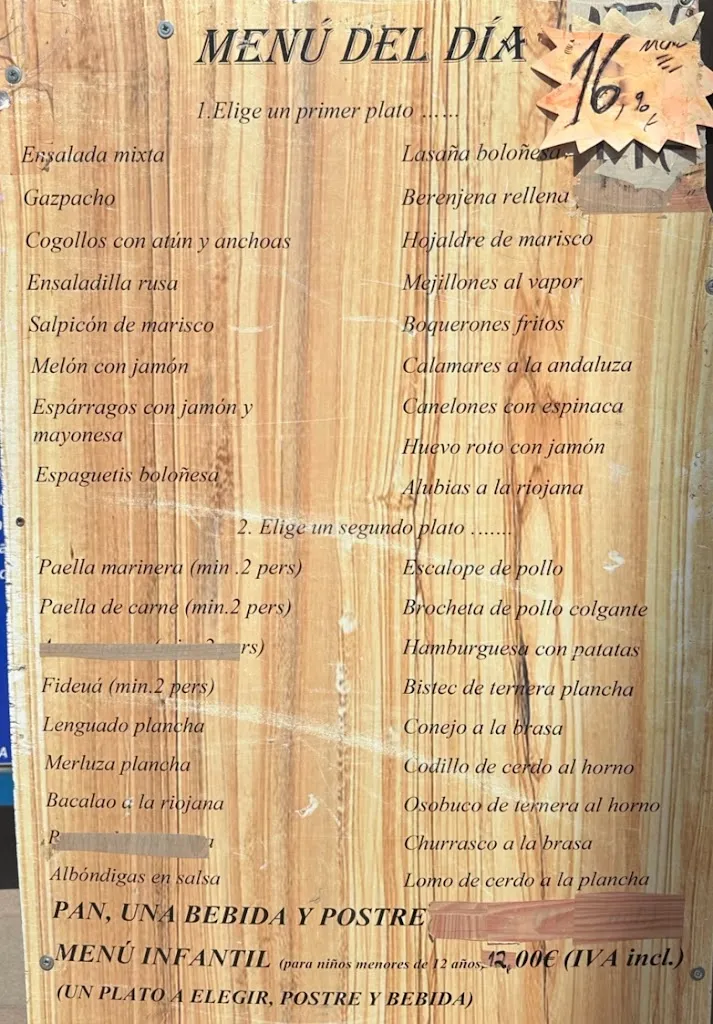 MENÚ DEL DÍA
16,90
1.Elige un primer plato ......
Ensalada mixta
Gazpacho
Cogollos con atún y anchoas
Ensaladilla rusa
Salpicón de marisco
Melón con jamón
Espárragos con jamón y
mayonesa
Espaguetis boloñesa
Lasaña boloñesa
Berenjena rellena
Hojaldre de marisco
Mejillones al vapor
Boquerones fritos
Calamares a la andaluza
Canelones con espinaca
Huevo roto con jamón
Alubias a la riojana
2. Elige un segundo plato .......
Paella marinera (min .2 pers)
Paella de carne (min.2 pers)
Fideuá (min.2 pers)
Lenguado plancha
Merluza plancha
Bacalao a la riojana
Albóndigas en salsa
Escalope de pollo
Brocheta de pollo colgante
Hamburguesa con patatas
Bistec de ternera plancha
Conejo a la brasa
Codillo de cerdo al horno
Osobuco de ternera al horno
Churrasco a la brasa
Lomo de cerdo a la plancha
PAN, UNA BEBIDA Y POSTRE
MENÚ INFANTIL (para niños menores de 12 años, 12,00€ (IVA incl.)
(UN PLATO A ELEGIR, POSTRE Y BEBIDA)